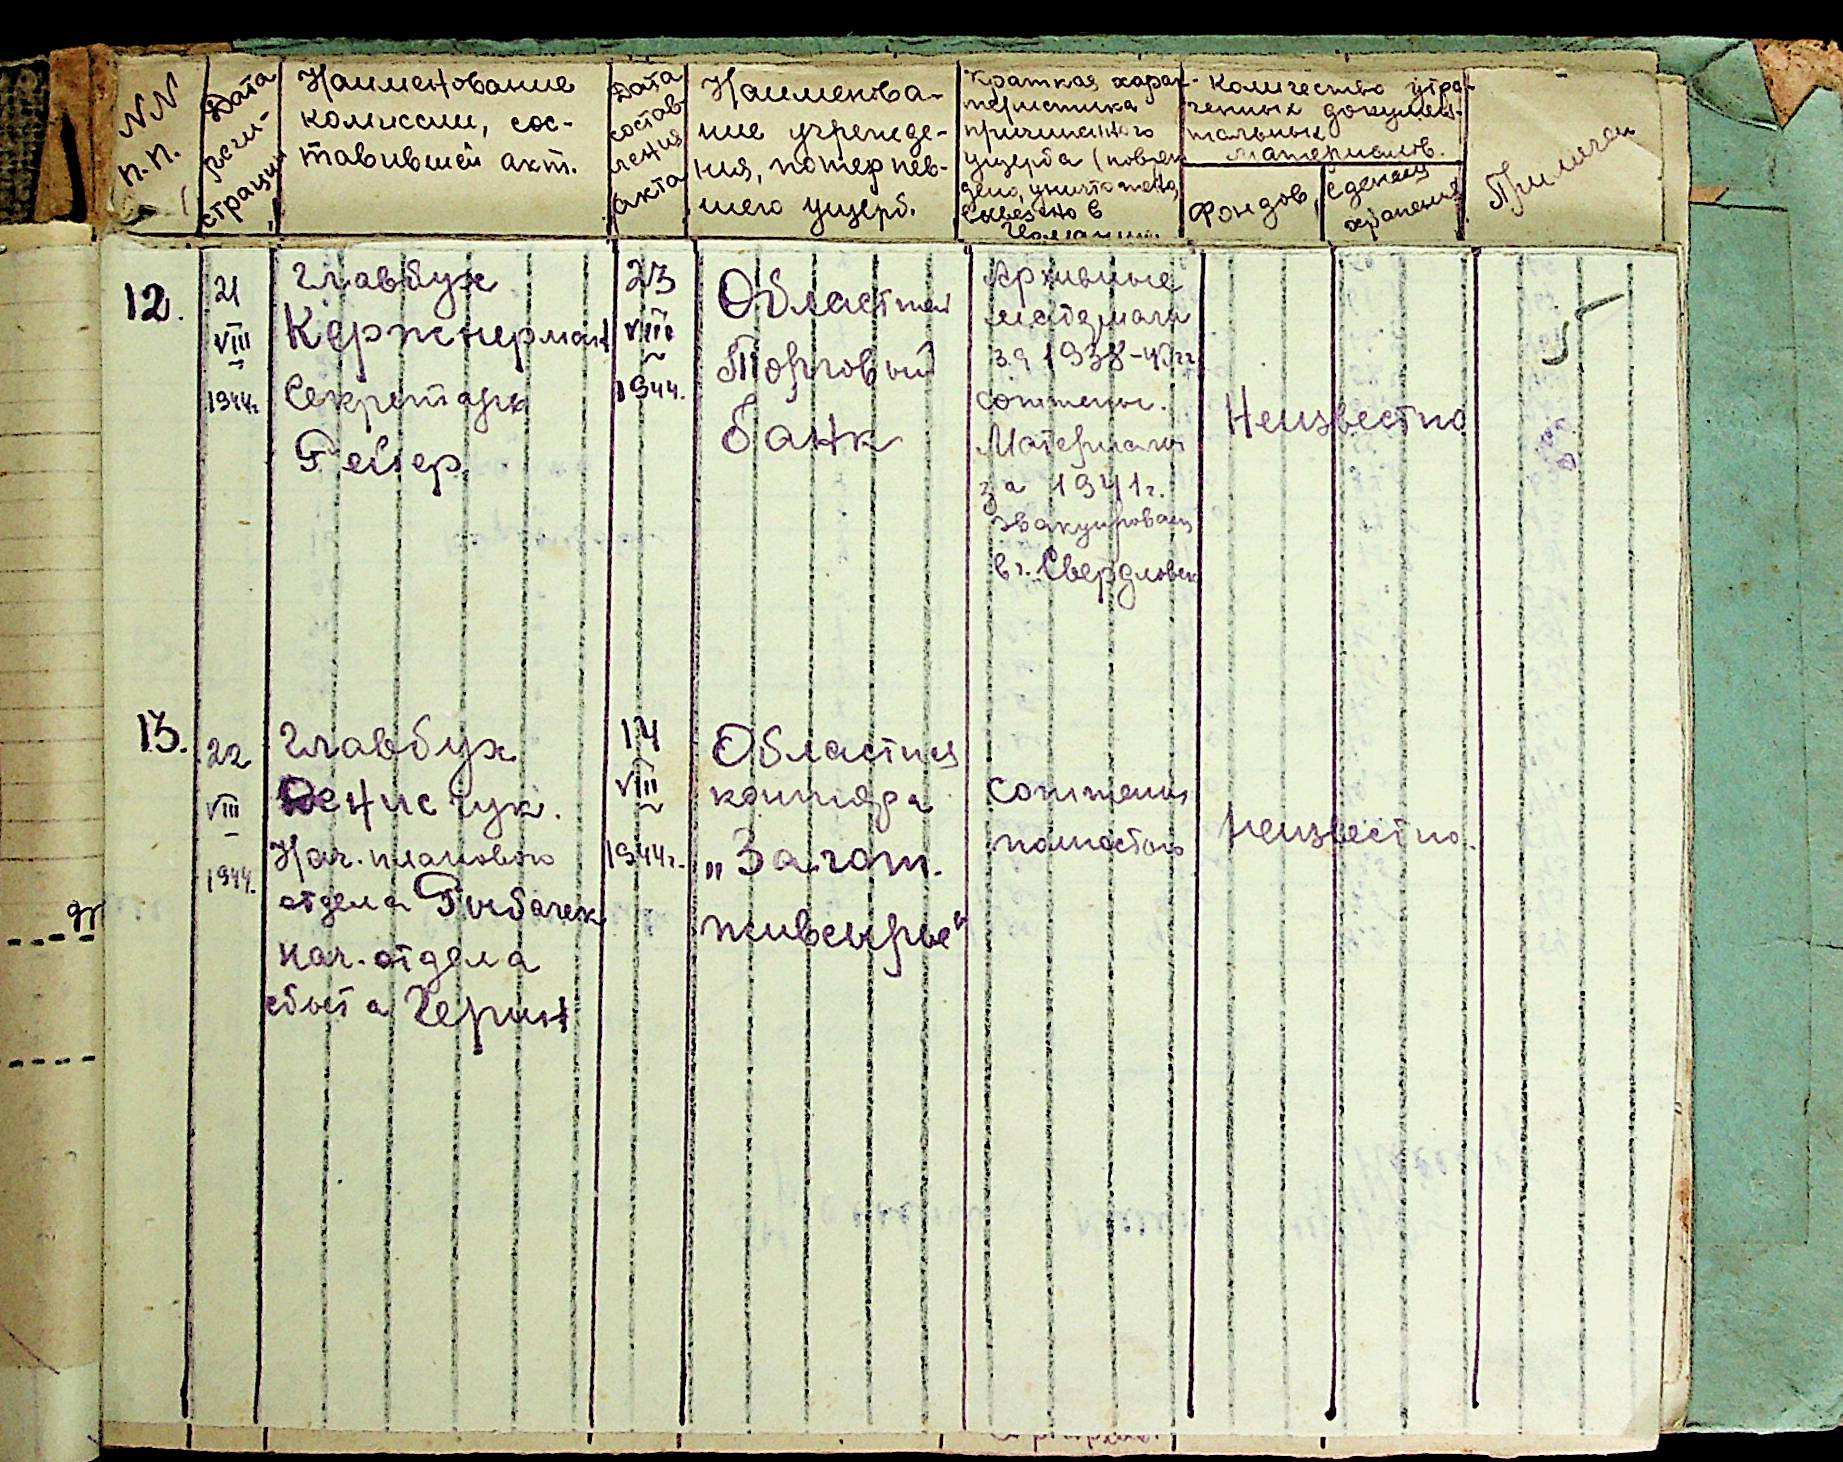 NN
п.п.
Дата
реги-
страции
Наименование
комиссии, сос-
тавившей акт.
Дата
состав-
ления
акта
Наименова-
ние учрежде-
ния, потерпев-
шего ущерб.
Краткая харак-
теристика
причиненного
ущерба (повреж
дено, уничтожено,
вывезено в
Германию.
Количество утра-
ченных докумен-
тальных
материалов.
Фондов,
единиц
хранения
Примечан
12.
21
VIII
1944г.
Главбух
Кержнерман
Секретарь
Гейер.
23
VIII
1944.
Областной
Торговый
банк
Архивные
материалы
за 1938-40гг.
сожжены.
Материалы
за 1941г.
эвакуированы
в г. Свердловск
Неизвестно
13.
22
VIII
1944.
Главбух
Денисчук.
Нач. планового
отдела
нач. отдела
сбыта Черин
14
VIII
1944г.
Областная
контора
„Загот.
живсырье"
сожжены
полностью
Неизвестно.